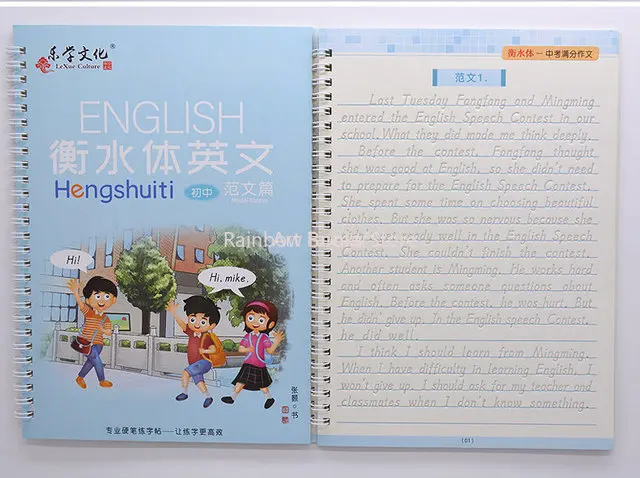 乐学文化®
LeXue Culture
ENGLISH
衡水体英文
Hengshuiti 初中 范文篇
Hi!
Hi, mike.
张颢。书
专业硬笔练字帖——让练字更高效
衡水体一中考满分作文
范文1.
Last Tuesday Fangfang and Mingming
entered the English Speech Contest in our
school. What they did made me think deeply.
Before the contest, Fangfang thought
she was good at English, so she didn't need
to prepare for the English Speech Contest.
She spent some time on choosing beautiful
clothes. But she was so nervous because she
didn't get ready well in the English Speech
Contest. She couldn't finish the contest.
Another student is Mingming. He works hard
and often asks someone questions about
English. Before the contest, he was hurt. But
he didn' give up. In the English speech Contest,
he did well.
I think I should learn from Mingming.
When I have difficulty in learning English, I
won't give up. I should ask for my teacher and
classmates when I don't know something.
(01)